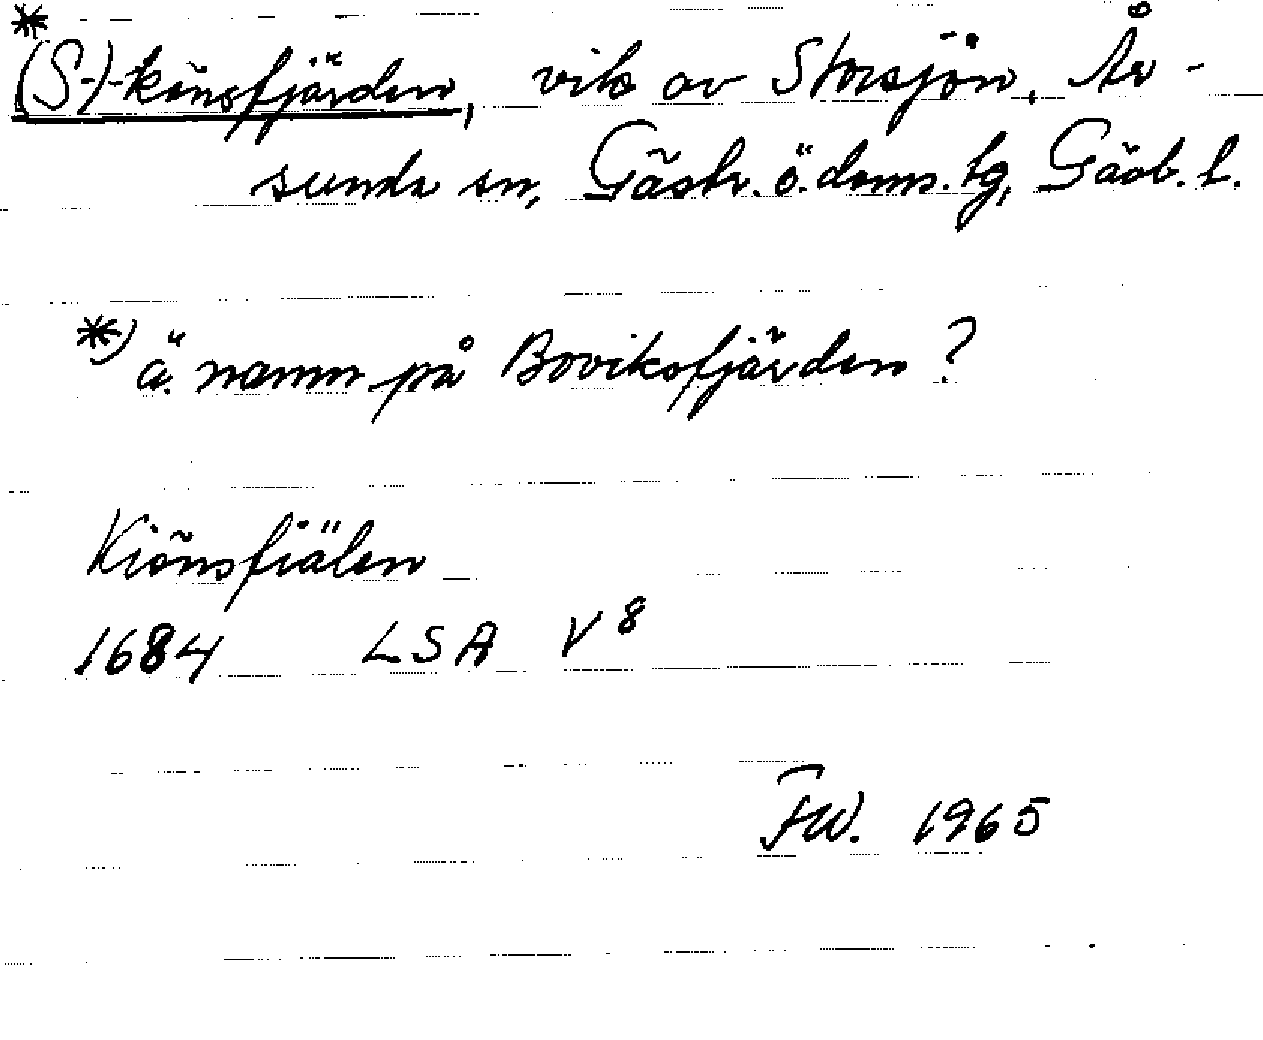 *
(S-)-könsfjärden, vik av Storsjön, År-
sunda sn, Gästr. ö. doms. tg, Gävb. l.
*) ä. namn på Boviksfjärden?
Kiönsfiälen
1684 LSA V8
FW. 1965